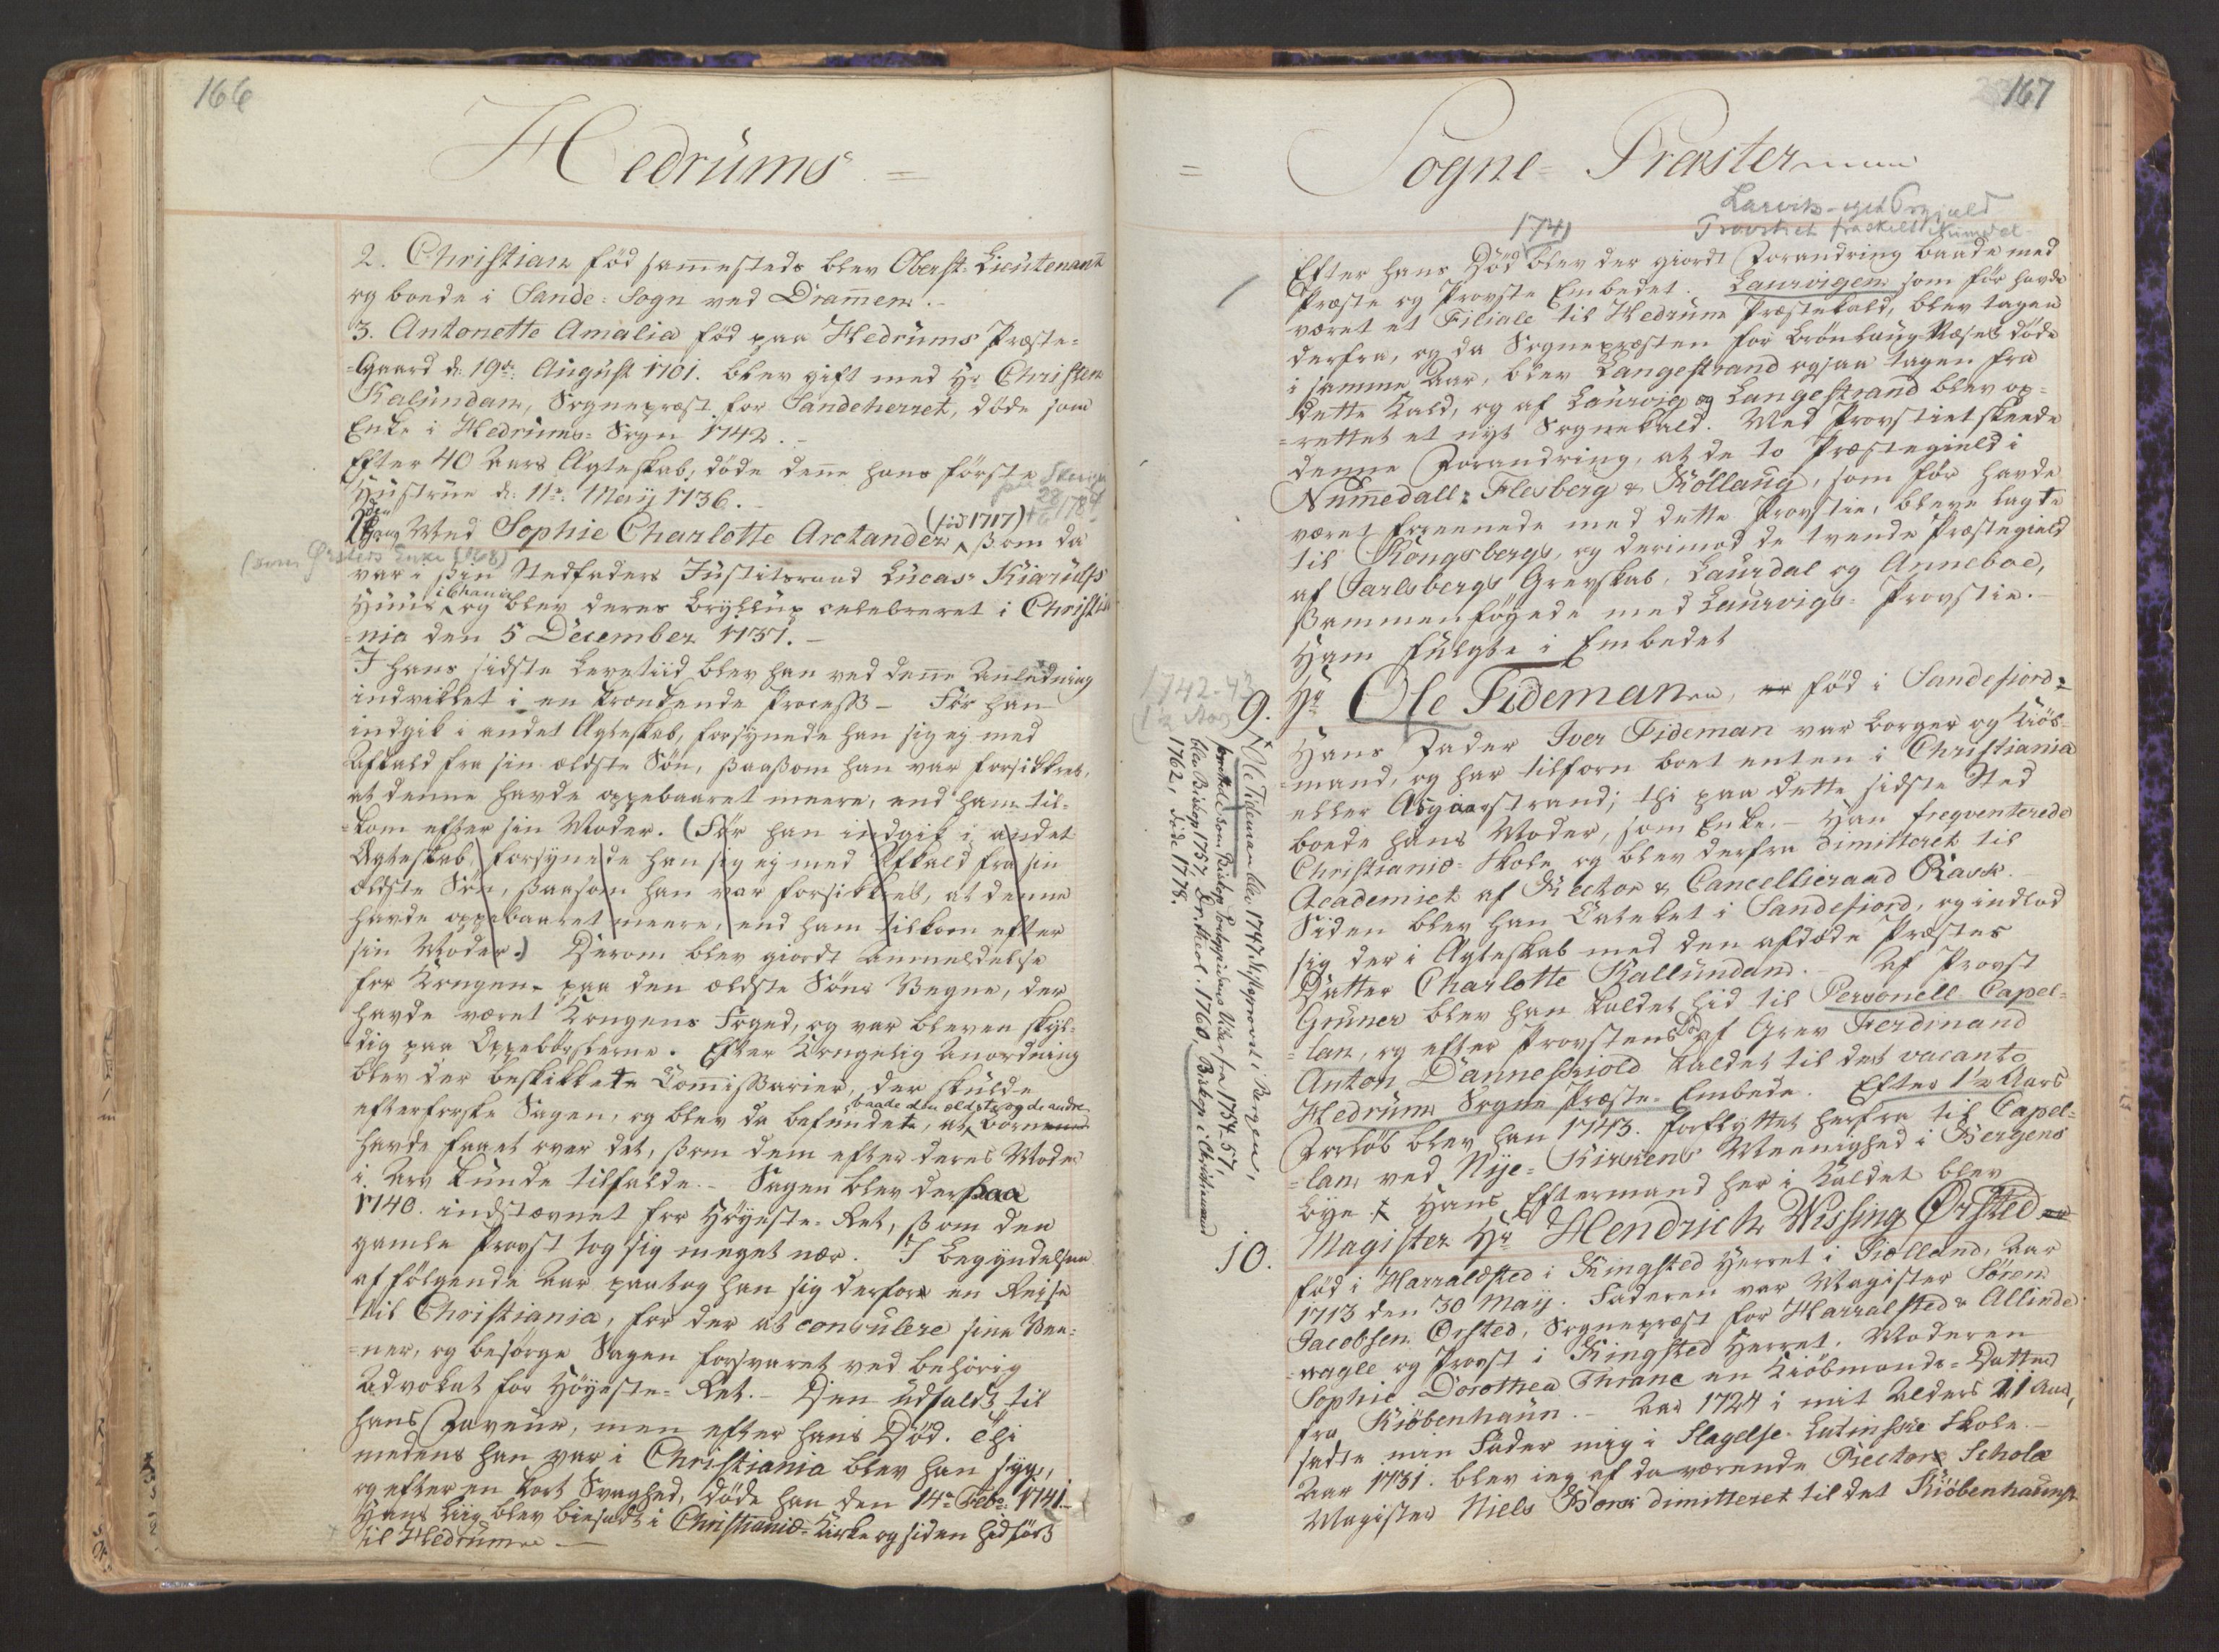 166
Hedrums =
2. Christian fød sam̅esteds blev Oberst-Lieutenant
og boede i Sande-Sogn ved Dram̅en.-
3. Antonette Amalia fød paa Hedrums Præste-
-Gaard d: 19de August 1701. blev gift med Hr Christen
Kalundan, Sognepræst for Sandeherret, døde som
Enke i Hedrums-Sogn 1742.-
Efter 40 Aars Ægteskab, døde den̅e hans første
Hustrue d: 11te Maij 1736.-
28/6 1784
2den Gang Med Sophie Charlotte Arctander (fød 1717) ßom da
(som Ørsteds Enke (168)
var i ßin Stedfaders Justitsraad Lucas Kiærulfs
Huus i Chania og blev deres Bryllup celebreret i Christia
-nia den 5 December 1737.-
I hans sidste Levetiid blev han ved den̅e Anledning
indviklet i en krænkende Proceß - Før han
indgik i andet Ægteskab, forsynede han sig ej med
Afkald fra sin ældste Søn, ßaaßom han var forsikkret,
at denne havde oppebaaret meere, end ham til-
-kom efter sin Moder. (Før han indgik i andet
Ægteskab, forsynede han sig ej med Afkald fra sin
ældste Søn, ßaasom han var forsikkret, at denne
havde oppebaaret meere, end ham tilkom efter
sin Moder.) Derom blev giordt Anmeldelse
for Kongen paa den ældste Søns Vegne, der
havde været Kongens Foged, og var bleven skyl-
-dig paa Oppebørsterne. Efter Kongelig Anordning
blev der beskikkete Com̅ißarier, der skulde
efterforske Sagen, og blev da befundet, at baade den ældste og de andre Børn
havde faaet over det, ßom dem efter deres Moder
i Arv kunde tilfalde.- Sagen blev derpaa
1740. indstævnet for Høyeste-Ret, ßom den
gamle Provst tog sig meget nær. I Begyndelsen
af følgende Aar paatog han sig derfor en Reise
til Christiania, for der at consulere sine Ven-
-ner, og besørge Sagen forsvaret ved behørig
Advokat for Høyeste-Ret.- Den udfaldt til
hans Faveur, men efter hans Død. Thi
medens han var i Christiania blev han syg,
og efter en kort Svaghed, døde han den 14de Febr: 1741.-
Hans Liig blev biesadt i Christianiæ-Kirke og siden hidført
til Hedrum
167
= Sogne-Præster
Larvik - eget Prgjæld
Provstiet fraskilt Numedal
1741
Efter hans Død blev der giordt Forandring baade med
Præste og Provste Embedet. Laurvigen som før havde
været et Filiale til Hedrum Præstekald, blev tagen
derfra, og da Sognepræsten for Brønlaug Næset døde
i samme Aar, blev Langestrand ogsaa tagen fra
dette Kald, og af Laurvig og Langestrand blev op-
-rettet et nyt Sognekald. Med Provstiet skeede
denne Forandring, at de to Præstegield i
Num̅edall: Flesberg & Rollaug, som før havde
været foreenede med dette Provstie, bleve lagte
til Kongsberg, og derimod de tvende Præstegield
af Jarlsbergs Grevskab, Laurdal og Anneboe,
ßammenføyede med Laurvigs-Provstie.-
Ham fulgte i Embedet
1742-43
1½ Aar
9. Hr Ole Tideman, fød i Sandefiord-
Hans Fader Iver Tideman var Borger og Kiøb-
-mand, og har tilforn boet enten i Christiania
eller Asgaarstrand; thi paa dette sidste Sted
boede hans Moder, som Enke.- Han freqventerede
Christianiæ-Skole og blev derfra dimitteret til
Academiet af Rector & Cancellieraad Rask.
Siden blev han Cateket i Sandefiord, og indlod
sig der i Ægteskab med den afdøde Præstes
Datter Charlotte Kallundand.- Af Provst
Gruner blev han kaldet hid til Personell Capel-
-lan, og efter Provstens Død af Grev Ferdinand
Anton Danneskiold kaldet til det vacante
Hedrums Sogne Præste-Embede. Efter 1½ Aars
Forløb blev han 1743. forflyttet herfra til Capel-
-lan ved Nye-Kirkens Meenighed i Bergens
Bye. x Hans Eftermand her i Kaldet blev
x Ole Tideman blev 1747 Stiftsprovst i Bergen,
blev Biskop 1757. Dr. theol. 1760, Biskop i Christiansand
1762, døde 1778.
10. Magister Hr Hendrich Wissing Ørsted
fød i Harraldsted i Ringsted Herret i Siælland, Aar
1713 den 30 Maij. Faderen var Magister Søren
Jacobsen Ørsted, Sognepræst for Harralsted & Allinde-
-magle og Provst i Ringsted Herret. Moderen
Sophie Dorothea Thrane en Kiøbmands-Datter
fra Kiøbenhaun.- Aar 1724 i mit Alders 11 Aar,
satte min Fader mig i Slagelse Latinske Skole.-
Aar 1731. blev ieg af da værende Rector Scholæ
Magister Niels dimitteret til det Kiøbenhaunske